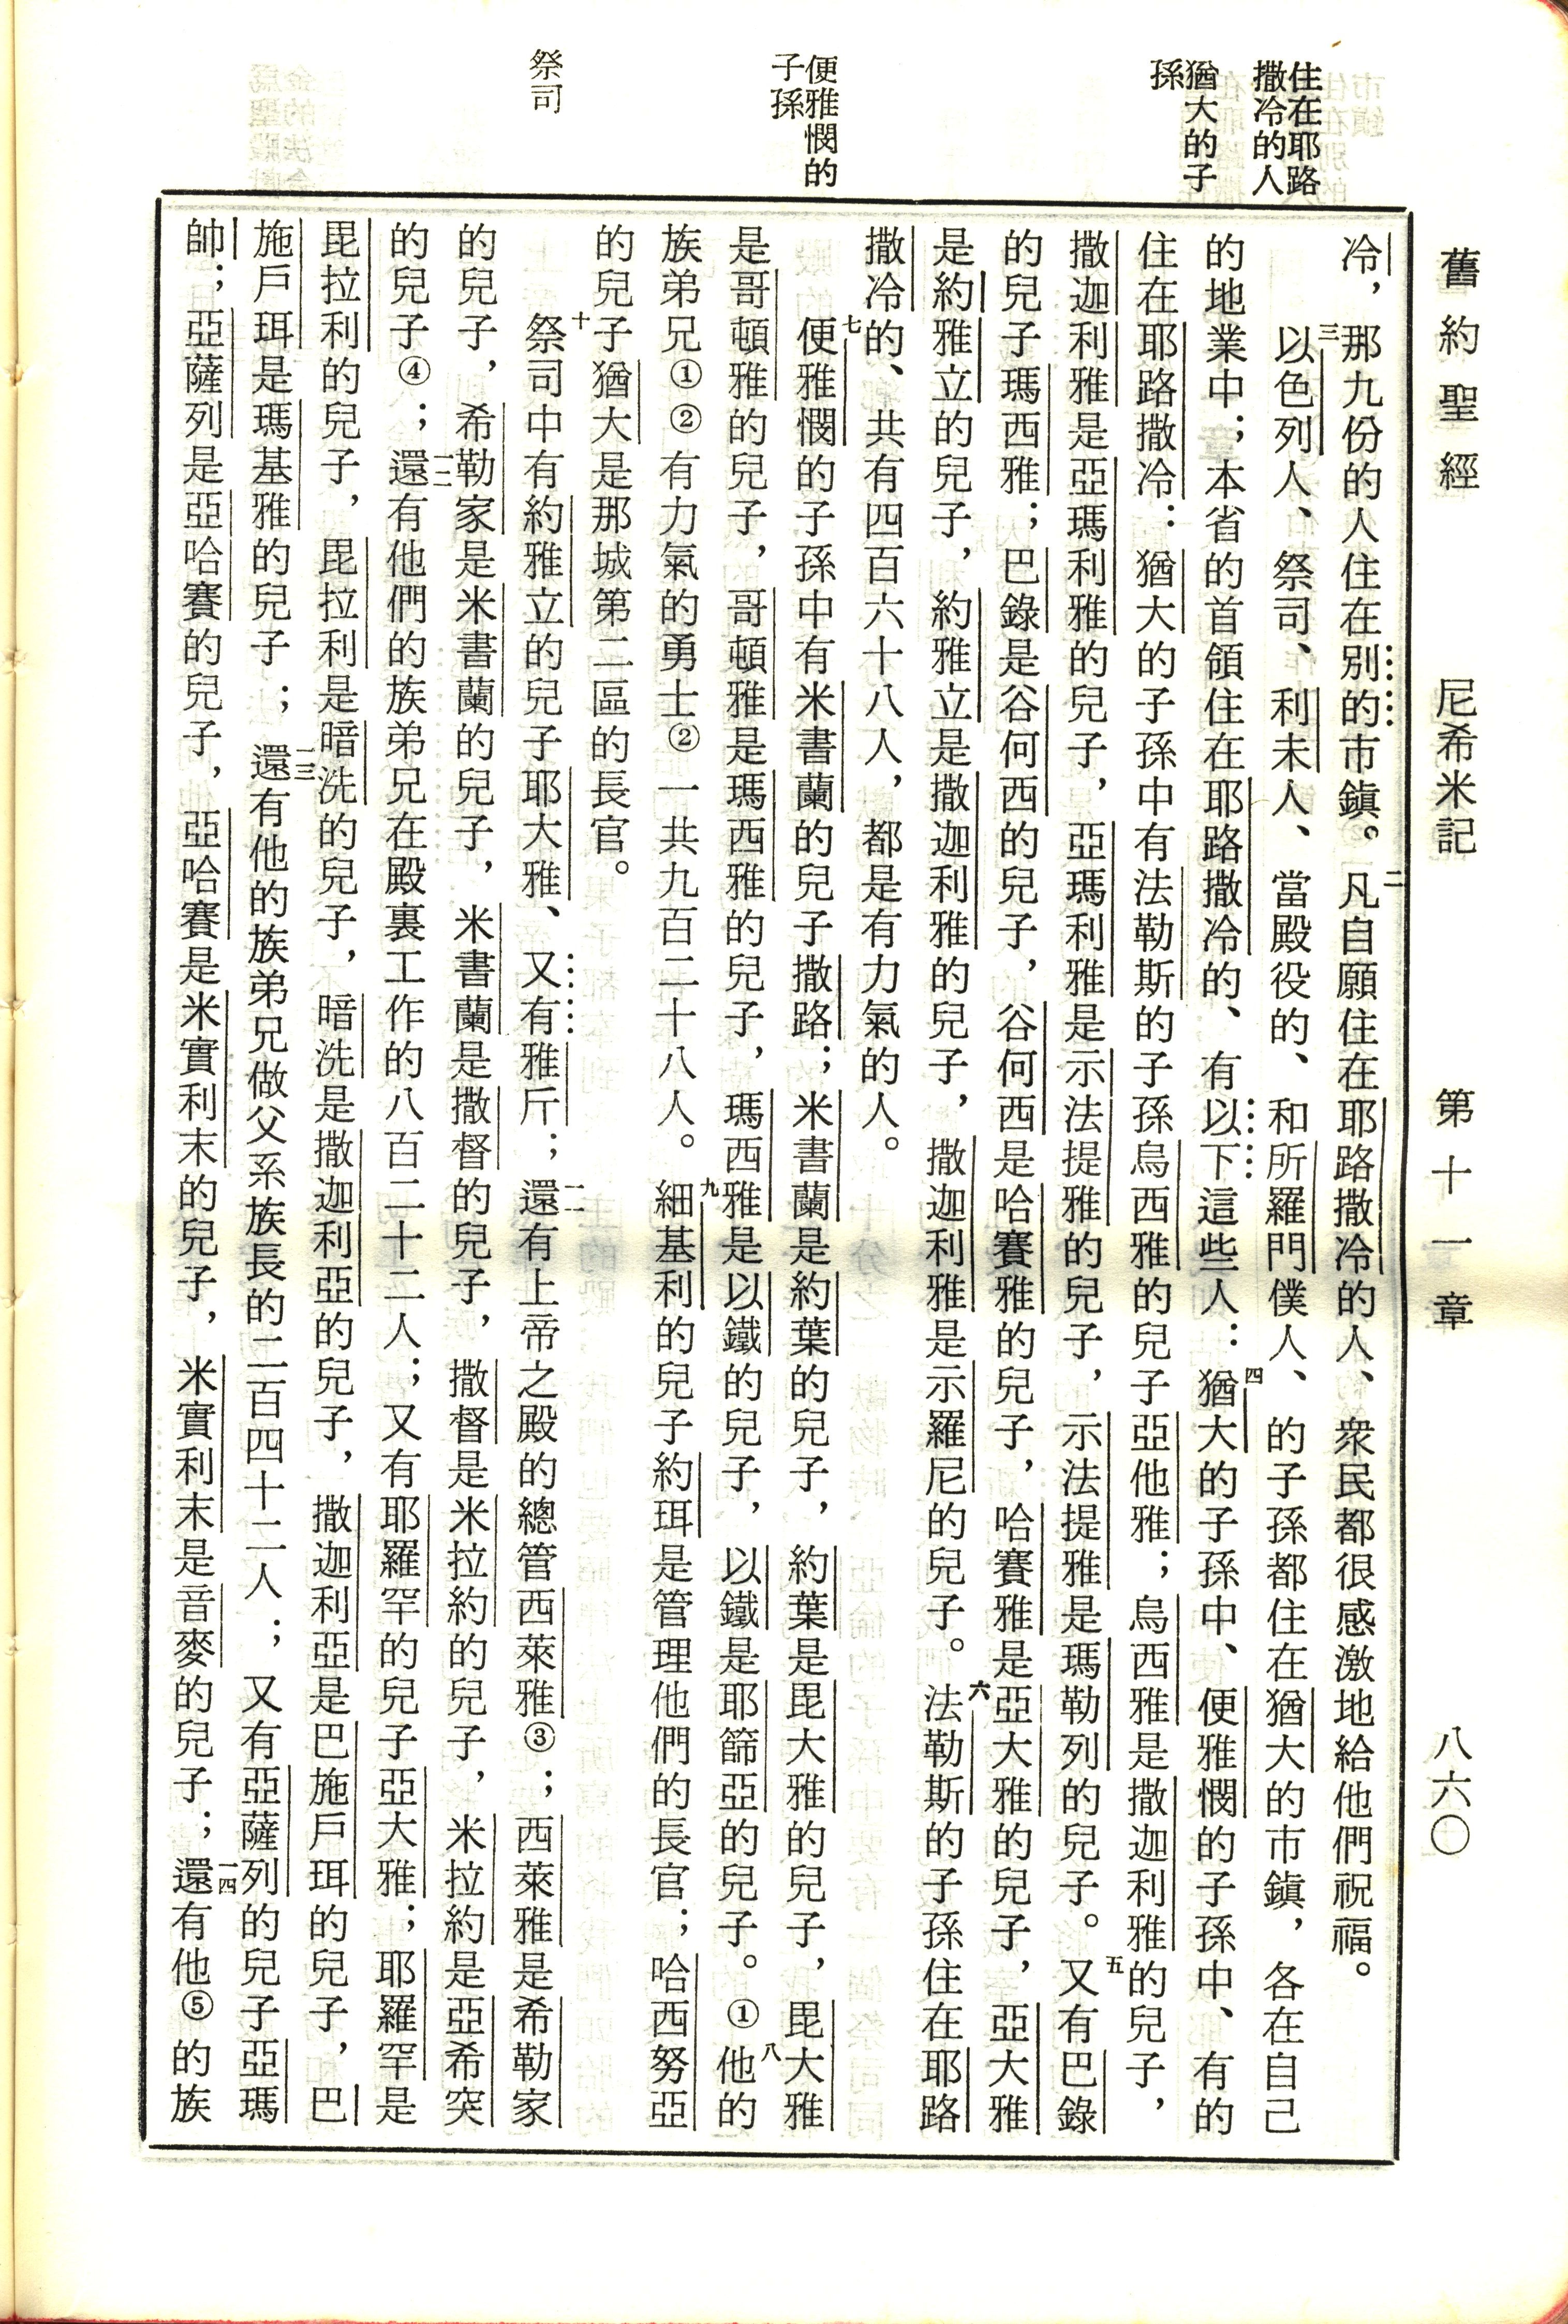 舊約聖經 尼希米記 第十一章 八六〇
住在耶路
撒冷的人
猶大的子
孫
便雅憫的
子孫
祭司
冷，那九份的人住在別的市鎭。二凡自願住在耶路撒冷的人、衆民都很感激地給他們祝福。
三以色列人、祭司、利未人、當殿役的、和所羅門僕人、的子孫都住在猶大的市鎭，各在自己
的地業中；本省的首領住在耶路撒冷的、有以下這些人：四猶大的子孫中、便雅憫的子孫中、有的
住在耶路撒冷：猶大的子孫中有法勒斯的子孫烏西雅的兒子亞他雅；烏西雅是撒迦利雅的兒子，
撒迦利雅是亞瑪利雅的兒子，亞瑪利雅是示法提雅的兒子，示法提雅是瑪勒列的兒子。五又有巴錄
的兒子瑪西雅；巴錄是谷何西的兒子，谷何西是哈賽雅的兒子，哈賽雅是亞大雅的兒子，亞大雅
是約雅立的兒子，約雅立是撒迦利雅的兒子，撒迦利雅是示羅尼的兒子。六法勒斯的子孫住在耶路
撒冷的、共有四百六十八人，都是有力氣的人。
七便雅憫的子孫中有米書蘭的兒子撒路；米書蘭是約葉的兒子，約葉是毘大雅的兒子，毘大雅
是哥頓雅的兒子，哥頓雅是瑪西雅的兒子，瑪西雅是以鐵的兒子，以鐵是耶篩亞的兒子。①八他的
族弟兄①②有力氣的勇士②一共九百二十八人。九細基利的兒子約珥是管理他們的長官；哈西努亞
的兒子猶大是那城第二區的長官。
十祭司中有約雅立的兒子耶大雅、又有雅斤；一一還有上帝之殿的總管西萊雅③；西萊雅是希勒家
的兒子，希勒家是米書蘭的兒子，米書蘭是撒督的兒子，撒督是米拉約的兒子，米拉約是亞希突
的兒子④；一二還有他們的族弟兄在殿裏工作的八百二十二人；又有耶羅罕的兒子亞大雅；耶羅罕是
毘拉利的兒子，毘拉利是暗洗的兒子，暗洗是撒迦利亞的兒子，撒迦利亞是巴施戶珥的兒子，巴
施戶珥是瑪基雅的兒子；一三還有他的族弟兄做父系族長的二百四十二人；又有亞薩列的兒子亞瑪
帥；亞薩列是亞哈賽的兒子，亞哈賽是米實利末的兒子，米實利末是音麥的兒子；一四還有他⑤的族